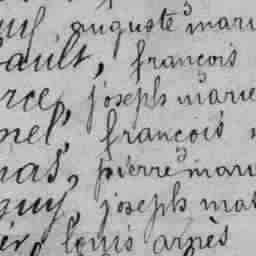 guy, auguste marie
ault, françois
rce, joseph marie
nel, françois
nas, pierre marie
guy, joseph mat
ier, louis agnès